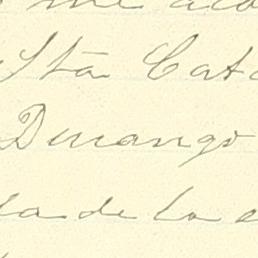 me
Sta Cat
Durango
da de la